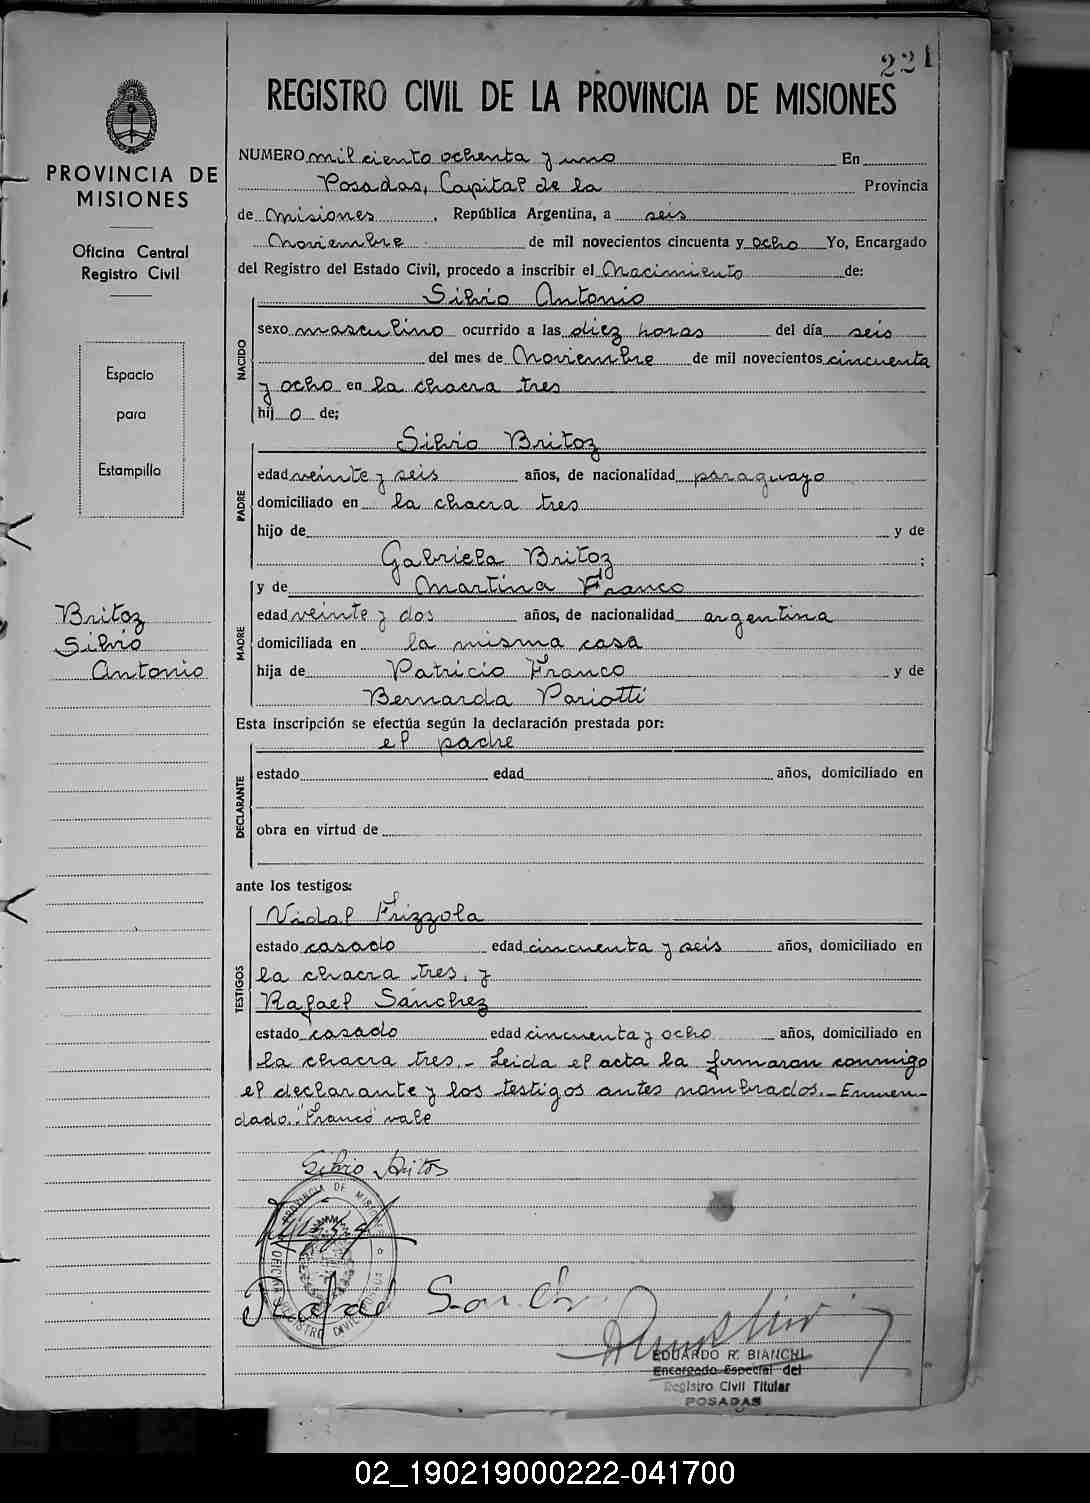 221
REGISTRO CIVIL DE LA PROVINCIA DE MISIONES
PROVINCIA DE
MISIONES
Oficina Central
Registro Civil
Espacio
para
Estampilla
Britoz
Silvio
Antonio
NUMERO mil ciento ochenta y uno En
Posadas, Capital de la Provincia
de Misiones, República Argentina, a seis
Noviembre de mil novecientos cincuenta y ocho Yo, Encargado
del Registro del Estado Civil, procedo a inscribir el Nacimiento de:
Silvio Antonio
NACIDO
sexo masculino ocurrido a las diez horas del día seis
del mes de Noviembre de mil novecientos cincuenta
y ocho en la chacra tres
hij o de;
Silvio Britoz
PADRE
edad veinte y seis años, de nacionalidad paraguayo
domiciliado en la chacra tres
hijo de y de
Gabriela Britoz ;
y de Martina Franco
MADRE
edad veinte y dos años, de nacionalidad argentina
domiciliada en la misma casa
hija de Patricio Franco y de
Bernarda Pariotti
Esta inscripción se efectúa según la declaración prestada por:
el padre
DECLARANTE
estado edad años, domiciliado en
obra en virtud de
ante los testigos:
Vidal Frizzola
TESTIGOS
estado casado edad cincuenta y seis años, domiciliado en
la chacra tres, y
Rafael Sánchez
estado casado edad cincuenta y ocho años, domiciliado en
la chacra tres.- Leida el acta la firmaron conmigo
el declarante y los testigos antes nombrados.-Enmen-
dado: "Franco" vale
Silvio Britos
PROVINCIA DE MISIONES
OFICINA
REGISTRO CIVIL
Rafael Sanch
EDUARDO R. BIANCHI
Encargado Especial del
Registro Civil Titular
POSADAS
02_190219000222-041700